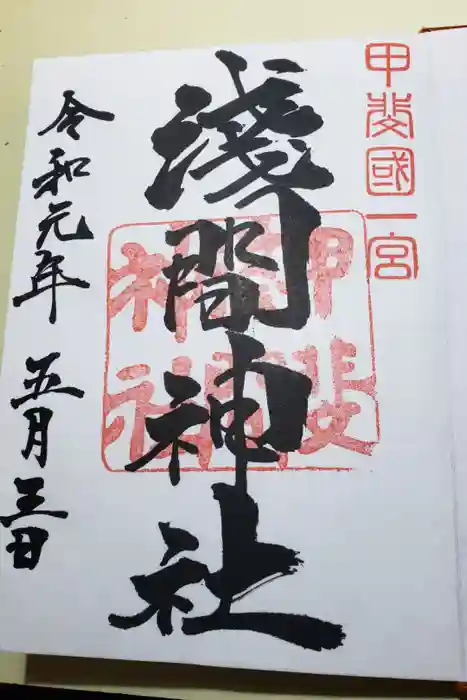 甲斐國一宮
淺間神社
令和元年
五月三日